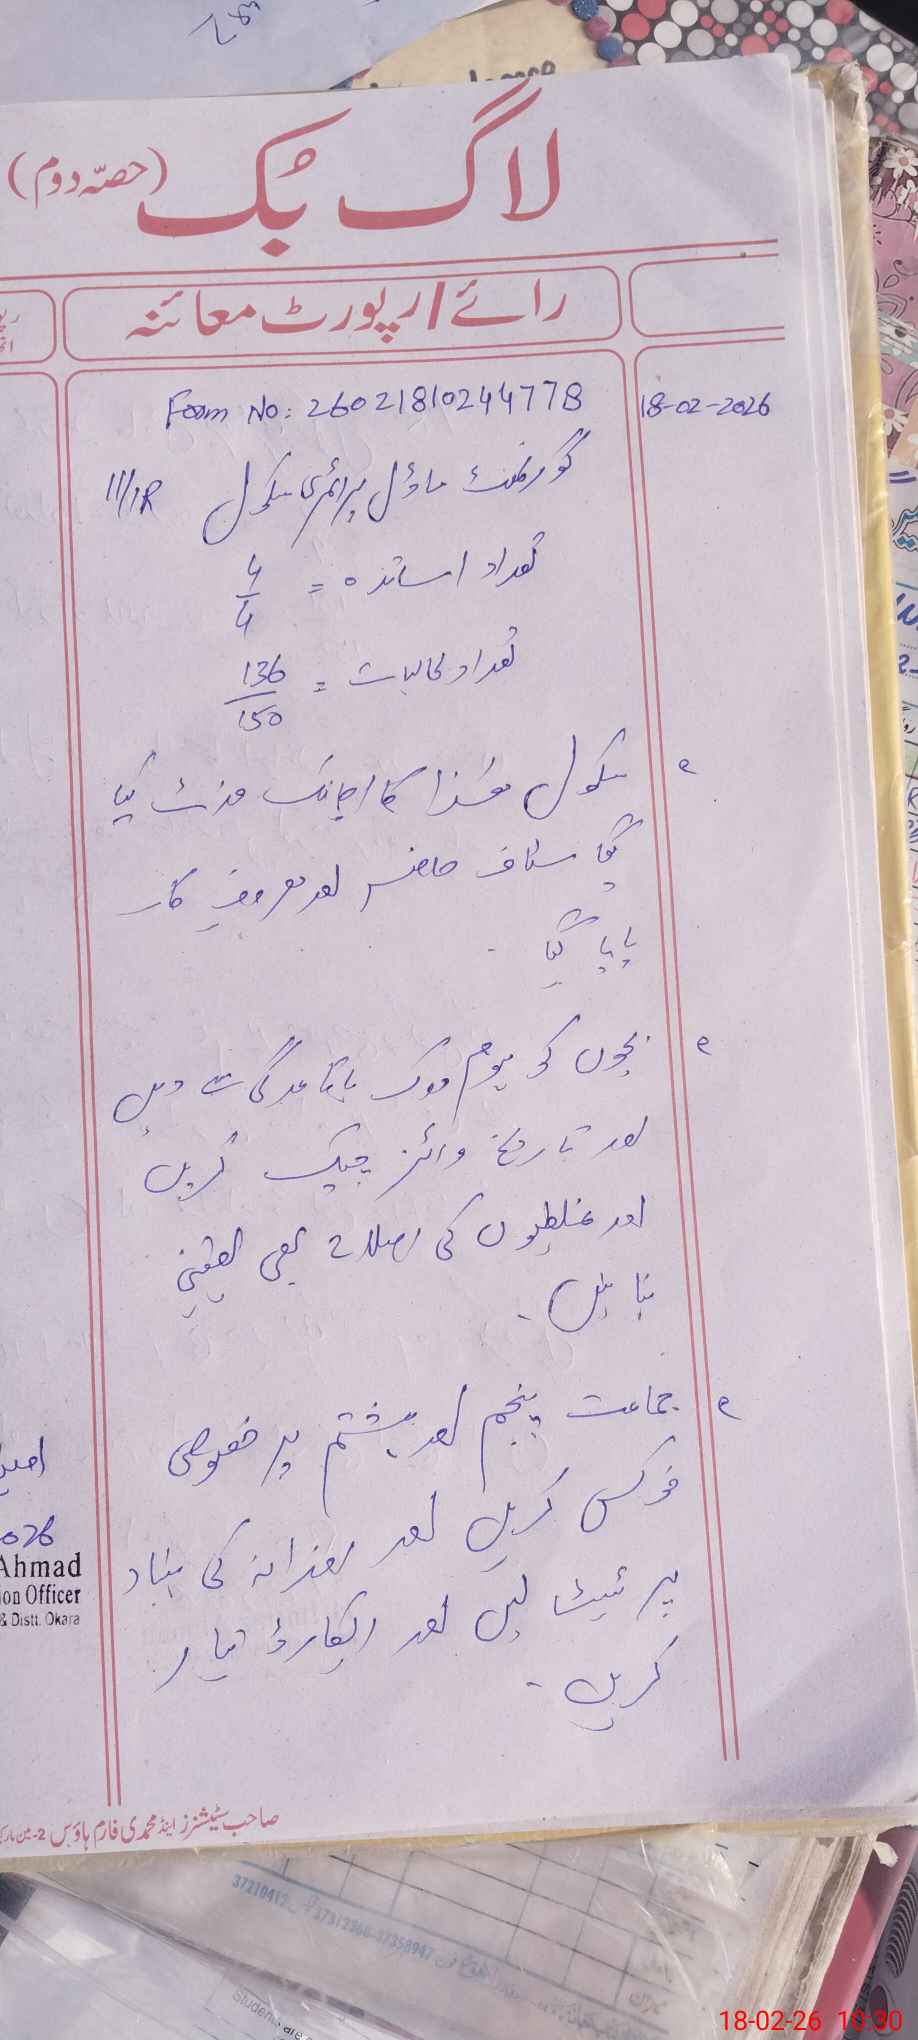 لاگ بُک (حصّہ دوم)
رائے/رپورٹ معائنہ
18-02-2026
Form No: 26021810244778
گورنمنٹ ماڈل پرائمری سکول 11/1R
تعداد اساتذہ = 4/4
تعداد طالبات = 136/150
سکول ھٰذا کا اچانک وزٹ کیا
گیا سٹاف حاضر اور مصروف کار
پایا گیا
بچوں کو ہوم ورک باقاعدگی سے دیں
اور تاریخ وائز چیک کریں
اور غلطیوں کی اصلاح بھی یقینی
بنائیں۔
جماعت پنجم اور ہشتم پر خصوصی
فوکس کریں اور روزانہ کی بنیاد
پر ٹیسٹ لیں اور ریکارڈ تیار
کریں۔
026
Ahmad
ion Officer
& Distt. Okara
صاحب سٹیشنرز اینڈ محمدی فارم ہاؤس 2-مین
37210412
37312366-37358947
18-02-26 10:30